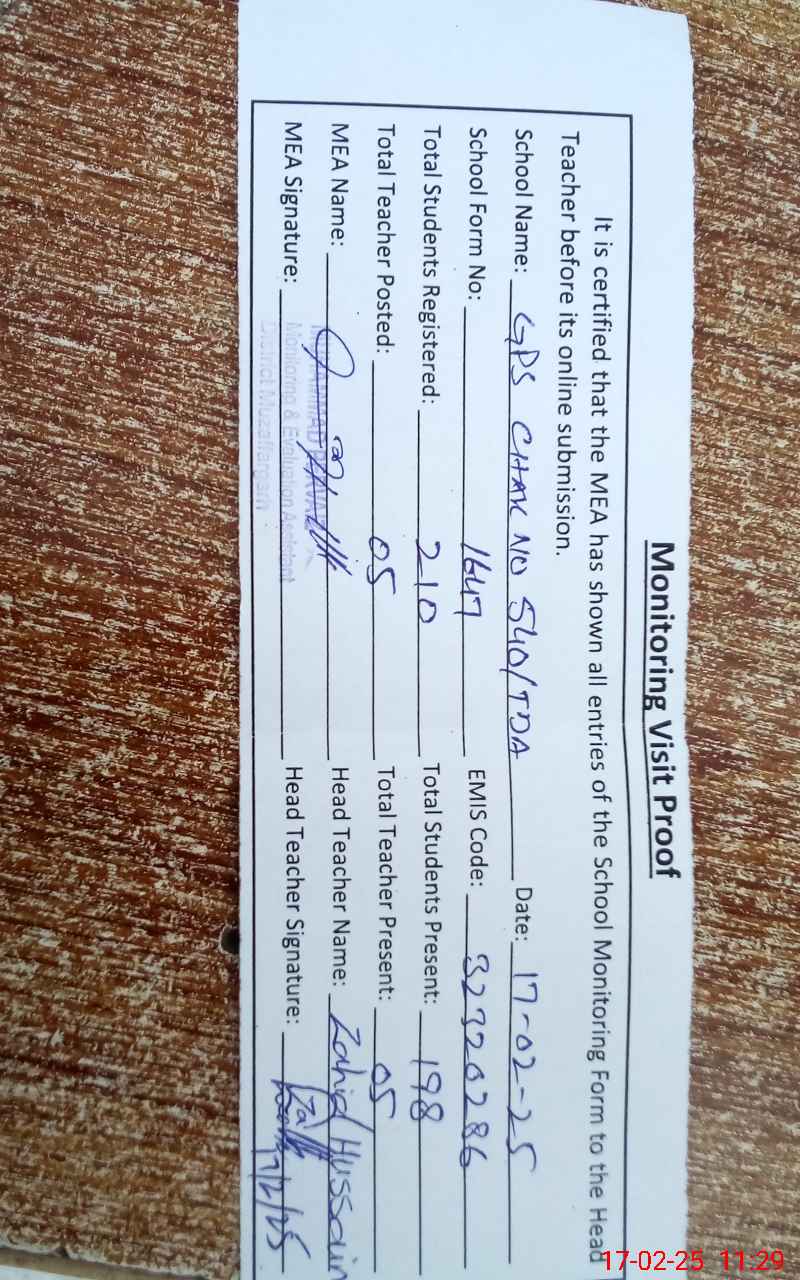 Monitoring Visit Proof
It is certified that the MEA has shown all entries of the School Monitoring Form to the Head
Teacher before its online submission.
School Name: GPS CHAK NO 540/TDA Date: 17-02-25
School Form No: 1647 EMIS Code: 32320286
Total Students Registered: 210 Total Students Present: 198
Total Teacher Posted: 05 Total Teacher Present: 05
MEA Name: Head Teacher Name: Zahid Hussain
MEA Signature: Head Teacher Signature: 17/2/25
Monitoring & Evaluation Assistant
District Muzaffargarh
17-02-25 11:29